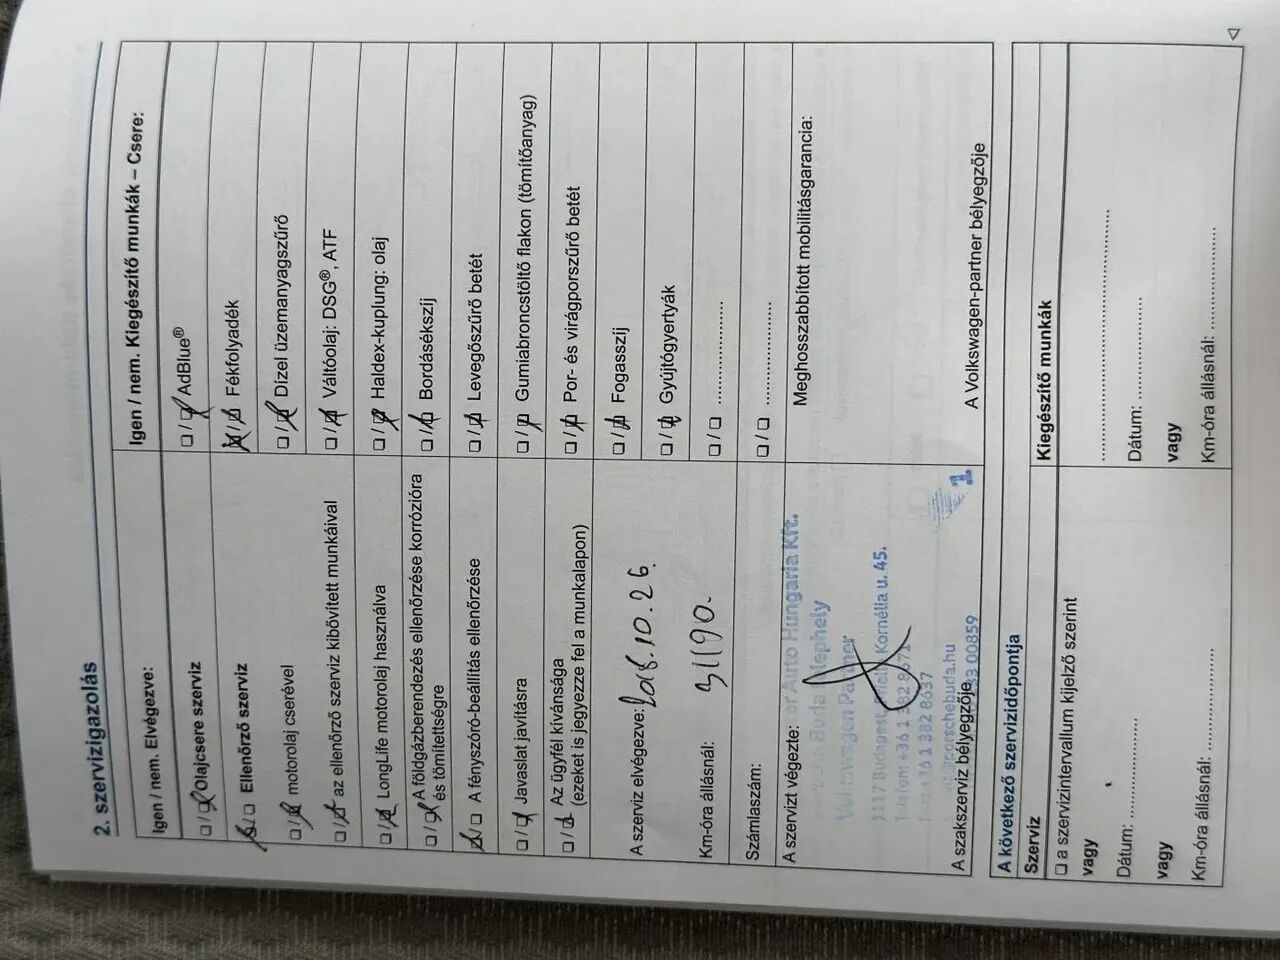 2. szervizigazolás
Igen / nem. Elvégezve:
☐ / ☒ Olajcsere szerviz
☒ / ☐ Ellenőrző szerviz
☐ / ☒ motorolaj cserével
☐ / ☒ az ellenőrző szerviz kibővített munkáival
☐ / ☒ LongLife motorolaj használva
☐ / ☒ A földgázberendezés ellenőrzése korrózióra
és tömítettségre
☒ / ☐ A fényszóró-beállítás ellenőrzése
☐ / ☒ Javaslat javításra
☐ / ☒ Az ügyfél kívánsága
(ezeket is jegyezze fel a munkalapon)
A szerviz elvégezve: 2018.10.26.
Km-óra állásnál: 31190.
Számlaszám:
A szervizt végezte:
Auto Hungaria Kft.
Buda telephely
Volkswagen Partner
1117 Budapest, Hell Kornélia u. 45.
Telefon: +36 1 382 8671
+36 1 382 8637
porschebuda.hu
00859
1.
A szakszerviz bélyegzője
Igen / nem. Kiegészítő munkák – Csere:
☐ / ☒ AdBlue®
☒ / ☒ Fékfolyadék
☐ / ☒ Dízel üzemanyagszűrő
☐ / ☒ Váltóolaj: DSG®, ATF
☐ / ☒ Haldex-kuplung: olaj
☐ / ☒ Bordásékszíj
☐ / ☒ Levegőszűrő betét
☐ / ☒ Gumiabroncstöltő flakon (tömítőanyag)
☐ / ☒ Por- és virágporszűrő betét
☐ / ☒ Fogasszíj
☐ / ☒ Gyújtógyertyák
☐ / ☐ ....................
☐ / ☐ ....................
Meghosszabbított mobilitásgarancia:
A Volkswagen-partner bélyegzője
A következő szervizidőpontja
Szerviz
☐ a szervizintervallum kijelző szerint
vagy
Dátum: ....................
vagy
Km-óra állásnál: ....................
Kiegészítő munkák
....................
Dátum: ....................
vagy
Km-óra állásnál: ....................